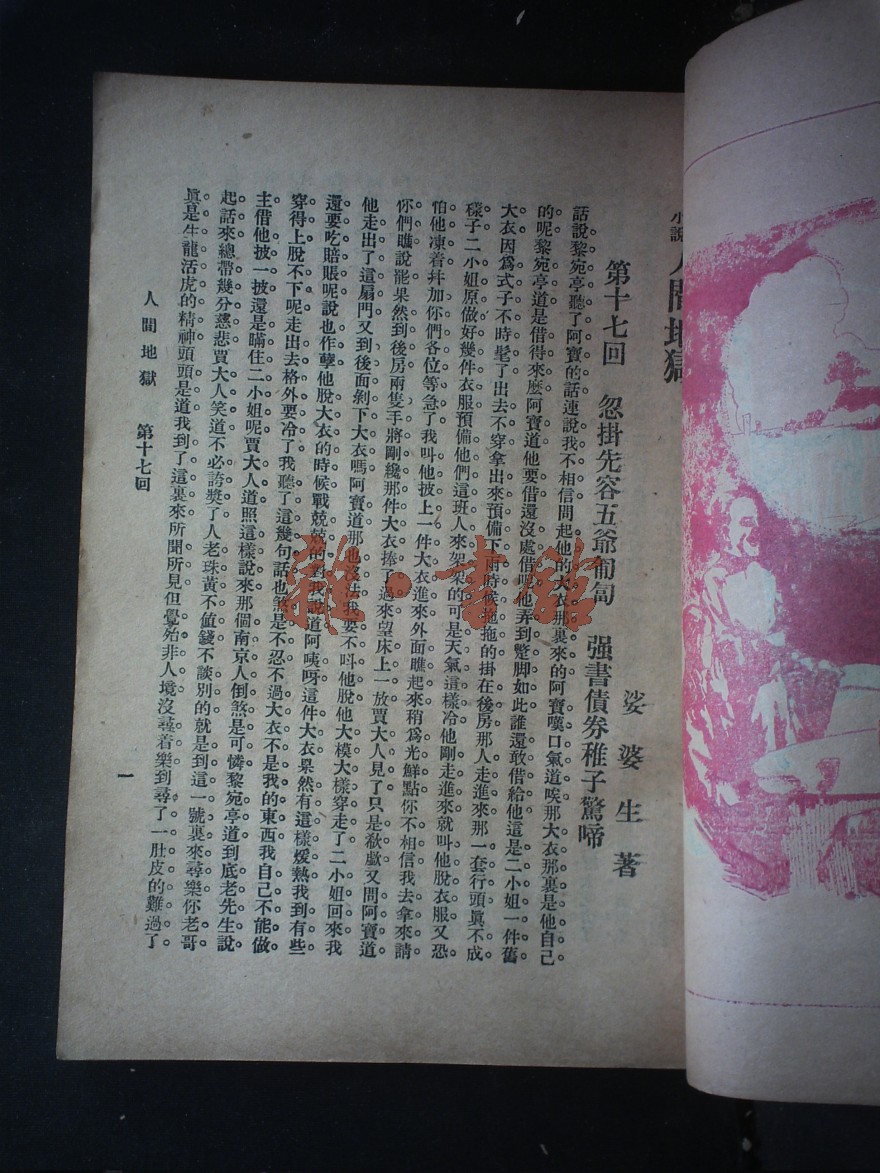 小說 人間地獄
娑婆生著
第十七回 忽掛先容五爺匍匐 强書債券稚子驚啼
話說黎宛亭聽了阿寶的話連說我不相信問起他的大衣那裏來的阿寶嘆口氣道唉那大衣那裏是他自己
的呢黎宛亭道是借得來麼阿寶道他要借還沒處借他弄到蹩脚如此誰還敢借給他這是二小姐一件舊
大衣因爲式子不時髦了出去不穿拿出來預備下雨時候拖拖的掛在後房那人走進來那一套行頭眞不成
樣子二小姐原做好幾件衣服預備他們這班人來架架的可是天氣這樣冷他剛走進來就叫他脫衣服又恐
怕他凍着幷加你們各位等急了我叫他披上一件大衣進來外面瞧起來稍爲光鮮點你不相信我去拿來請
你們瞧說罷果然到後房兩隻手將剛纔那件大衣捧了過來望床上一放賈大人見了只是欷歔又問阿寶道
他走出了這扇門又到後面剝下大衣嗎阿寶道那也沒法我要不叫他脫他大模大樣穿走了二小姐回來我
還要吃賠賬呢說也作孽他脫大衣的時候戰兢兢的對我說道阿咦呀這件大衣果然有這樣煖熱我到有些
穿得上脫不下呢走出去格外要冷了我聽了這幾句話也煞是不忍不過大衣不是我的東西我自己不能做
主借他披一披還是瞞住二小姐呢賈大人道照這樣說來那個南京人倒煞是可憐黎宛亭道到底老先生說
起話來總帶幾分慈悲賈大人笑道不必誇獎了人老珠黃不值錢不談別的就是到這一號裏來尋樂你老哥
眞是生龍活虎的精神頭頭是道我到了這裏來所聞所見但覺始非人境沒尋着樂到尋了一肚皮的難過了
人間地獄 第十七回
一
雜·書館